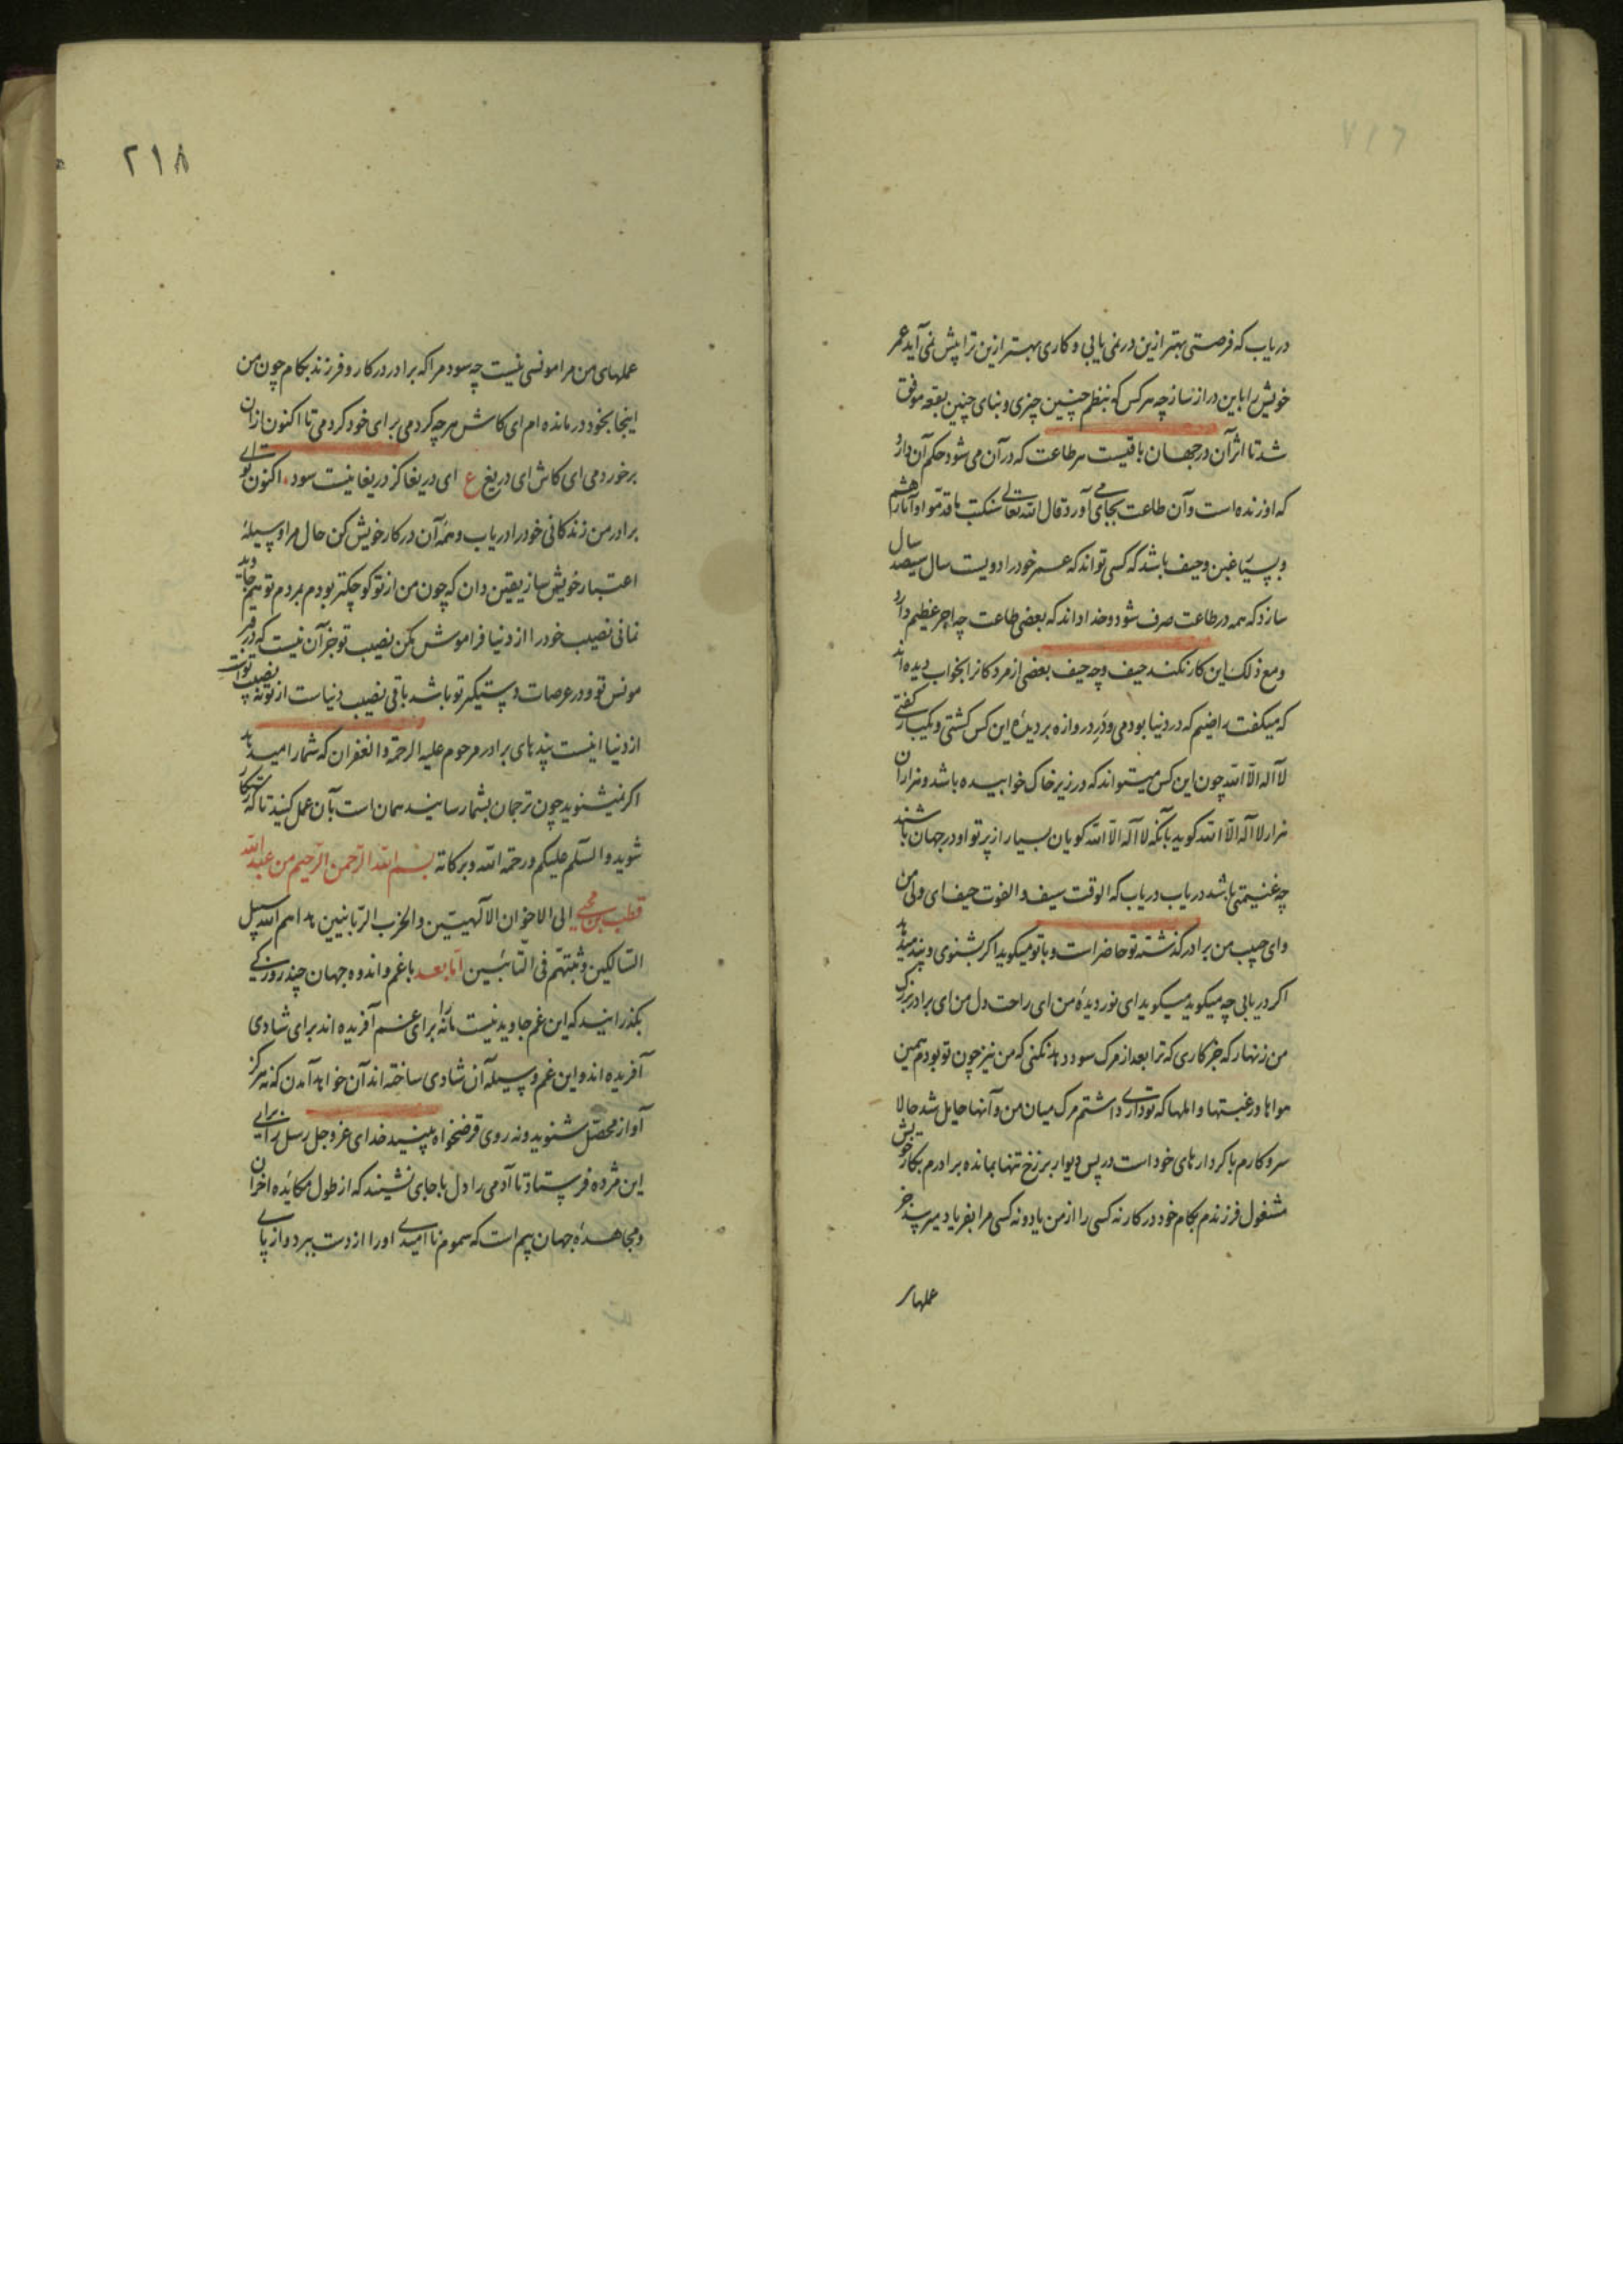 دریاب که فرصتی بهتر ازین درنمی یابی و کاری بهتر ازین ترا پیش نمی آید عمر
خویش را باین دراز ساز چه هر کس که بنظم چنین چیزی و بنای چنین بقعه موفق
شد تا اثر آن در جهان باقیست هر طاعت که در آن می شود حکم آن دارد
که او زنده است و آن طاعت بجای می آورد قال الله تعالی سنکتب ما قدموا و آثارهم
و بسی غبن و حیف باشد که کسی تواند که عمر خود را دویست سال سیصد سال
سازد که همه در طاعت صرف شود و خدا داند که بعضی طاعت چه اجر عظیم دارد
و مع ذلک این کار نکند حیف و چه حیف بعضی از مردکانرا بخواب دیده اند
که میکفت راضیم که در دنیا بودمی و در دروازه بر دیدهٔ این کس کشتی و یکبار کفتی
لا اله الا الله چون این کس میتواند که در زیر خاک خوابیده باشد و هزاران
هزار لا اله الا الله کوید بآنکه لا اله الا الله کویان بسیار از پرتو او در جهان باشند
چه غنیمتی باشد دریاب دریاب که الوقت سیف و الفوت حیف ای ولی من
و ای حبیب من برادر کذشته تو حاضر است و با تو میکوید اکر بشنوی و پند میدهد
اکر دریابی چه میکوید میکوید ای نور دیدهٔ من ای راحت دل من ای برادر بزرک
من زنهار که جز کاری که ترا بعد از مرک سود دهد نکنی که من نیز چون تو بودم همین
هواها و رغبتها و املها که تو داری داشتم مرک میان من و آنها حایل شد حالا
سر و کارم با کردارهای خود است در پس دیوار برزخ تنها بمانده برادرم بکار خویش
مشغول فرزندم بکام خود در کار نه کسی را از من یاد و نه کسی مرا بفریاد میرسد جز
عملهای
۲۱۸
عملهای من مرا مونسی نیست چه سود مرا که برادر در کار و فرزند بکام چون من
اینجا بخود درمانده ام ای کاش هر چه کردمی برای خود کردمی تا اکنون از آن
برخوردمی ای کاش ای دریغ ع ای دریغا کز دریغا نیست سود. اکنون تو ای
برادر من زندکانی خود را دریاب و همه آن در کار خویش کن حال مرا وسیلهٔ
اعتبار خویش ساز یقین دان که چون من از تو کوچکتر بودم بمردم تو هم جاوید
نمانی نصیب خود را از دنیا فراموش مکن نصیب تو جز آن نیست که در قبر
مونس تو و در عرصات دستیکر تو باشد باقی نصیب دنیاست از تو نه نصیب تو است
از دنیا اینست پندهای برادر مرحوم علیه الرحمة و الغفران که شما را میدهد
اکر نمیشنوید چون ترجمان بشما رسانید همان است بآن عمل کنید تا که رستکار
شوید و السلم علیکم و رحمة الله و برکاته بسم الله الرحمن الرحیم من عبد الله
قطب بن محیی الی الاخوان الالهیین و الحزب الربانیین هداهم الله سبیل
السالکین و ثبتهم فی التائبین اما بعد با غم و اندوه جهان چند روزکی
بکذرانید که این غم جاوید نیست ما را نه برای غم آفریده اند برای شادی
آفریده اند و این غم وسیله آن شادی ساخته اند آن خواهد آمدن که نه هرکز
آواز محصل شنوید و نه روی قرضخواه بینید خدای عز و جل رسل را برای
این مژده فرستاد تا آدمی را دل با جای نشیند که از طول مکایده احزان
و مجاهدهٔ جهان بیم است که سموم ناامیدی او را از دست ببرد و از پای